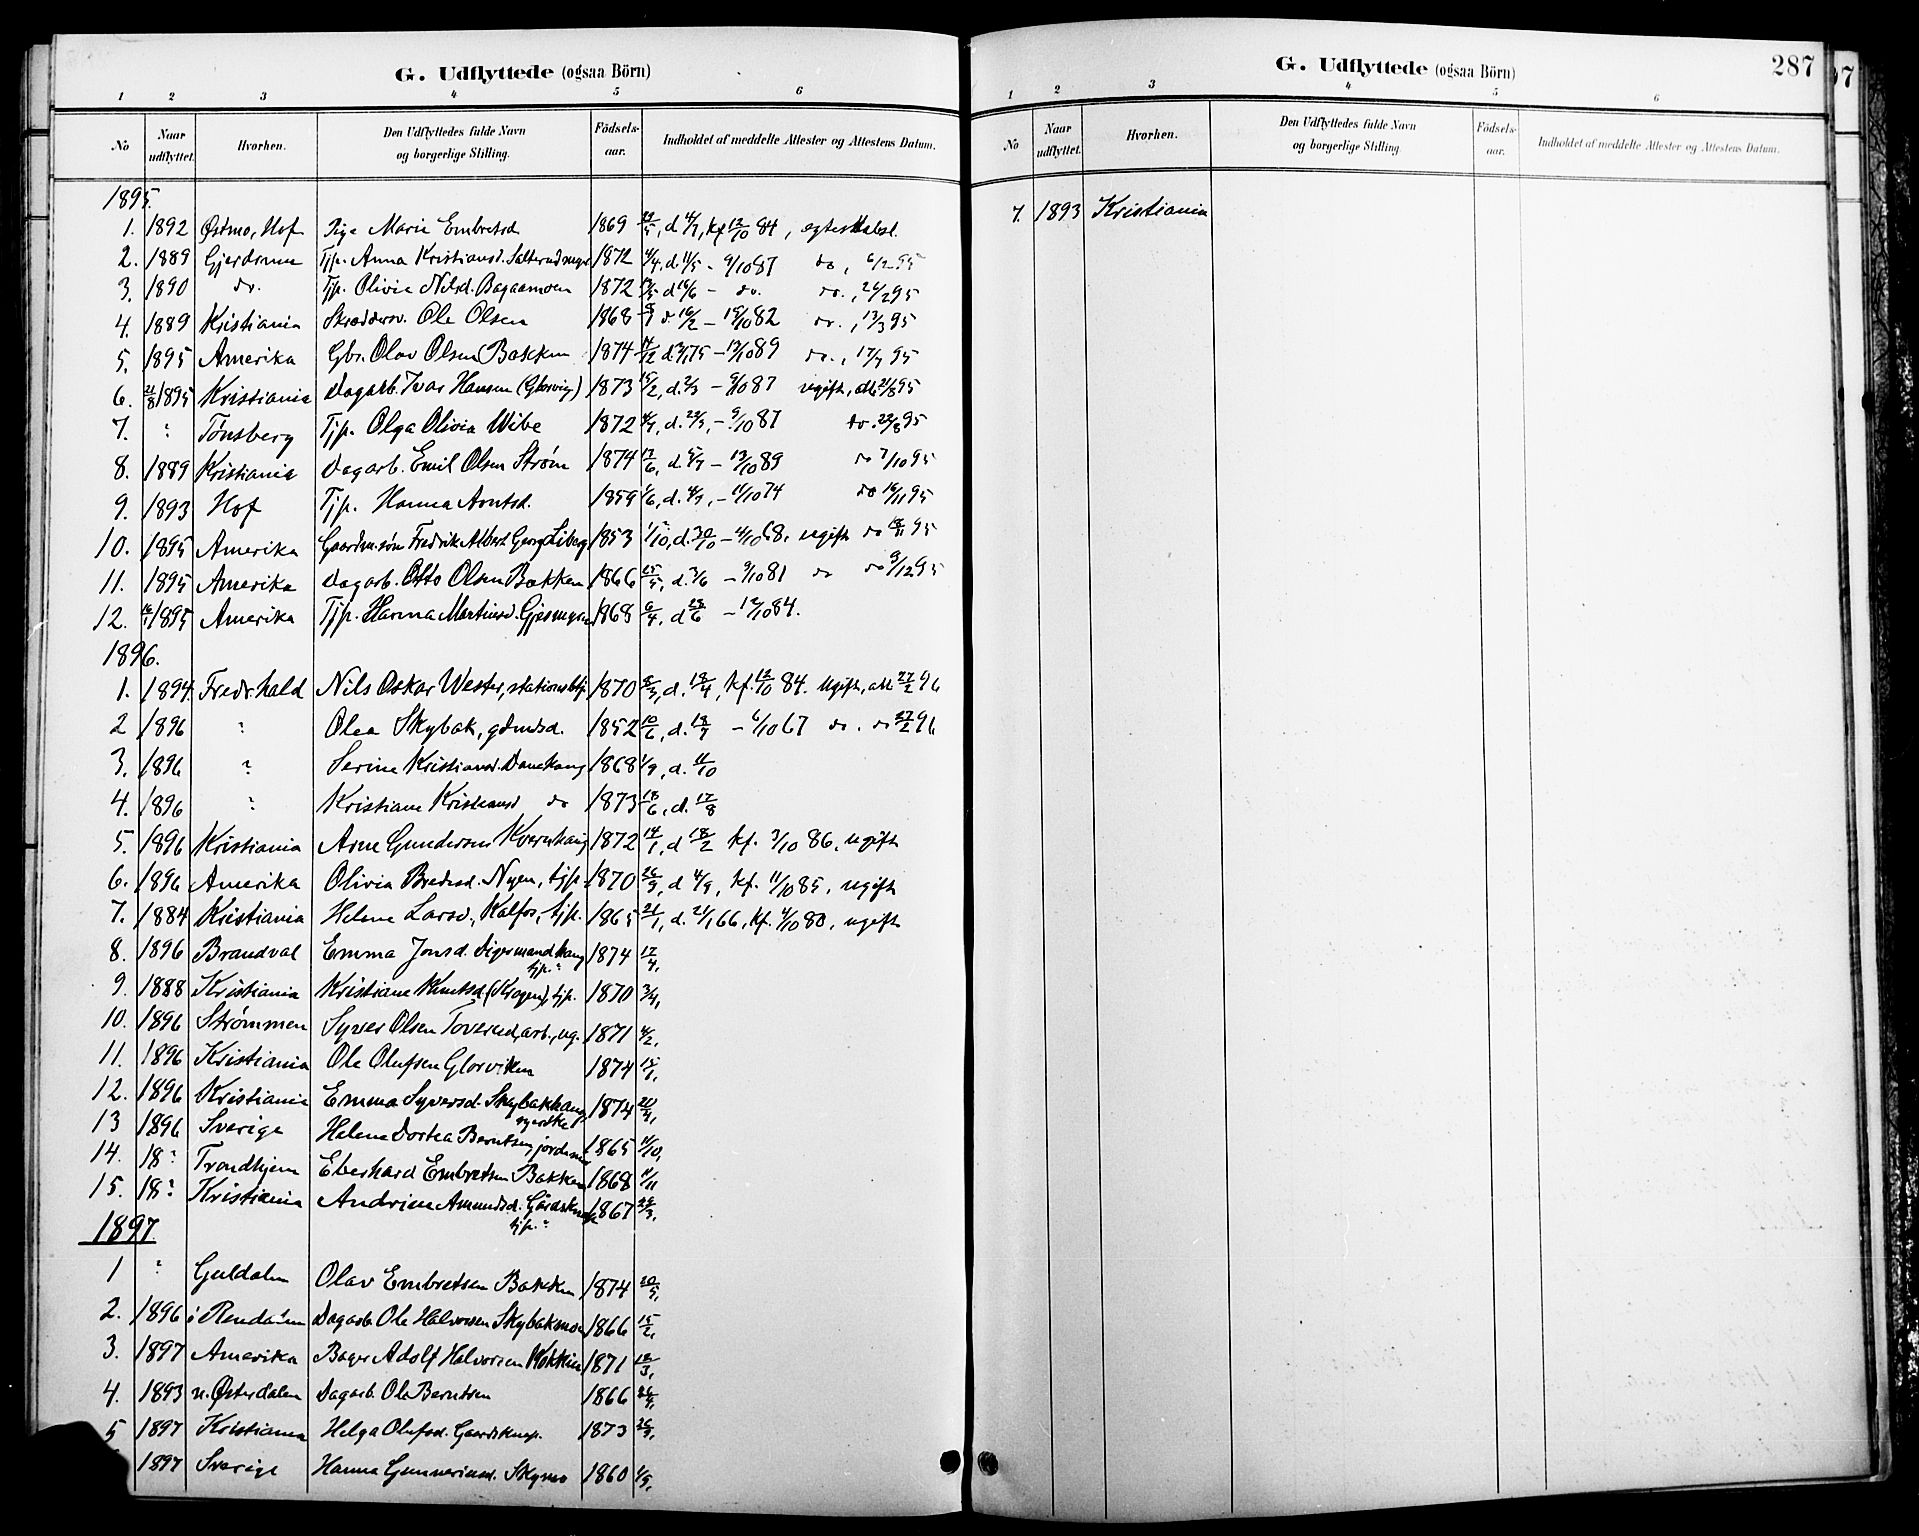 G. Udflyttede (ogsaa Börn)
1 2 3 4 5 6
No Naar udflyttet. Hvorhen. Den Udflyttedes fulde Navn og borgerlige Stilling. Födsels-aar. Indholdet af meddelte Attester og Attestens Datum.
1895.
1. 1892 Østmo, Hof Pige Marie Embretsd 1869 d. 4/7, kf 12/10 84, egteskabsl.
2. 1889 Gjerdrum Tjp. Anna Kristiansd. 1872 d. 11/5 - 9/10 87 do, 6/2 95
3. 1890 do. Tjp. Olivia Nilsd. Bagaamoen 1872 d 16/6 - do. do., 26/2 95
4. 1889 Kristiania Skræddersv. Ole Olsen 1868 d. 16/2 - 15/10 82 do., 13/3 95
5. 1895 Amerika Gbr. Olav Olsen Bakken 1874 14/12 d 3/1 75 - 13/10 89 do., 17/7 95
6. 21/8 1895 Kristiania Dagarb. Ivar Hansen (Glorvig) 1873 15/2, d. 2/3 - 9/10 87 ugift, att. 21/8 95
7. " Tønsberg Tjp. Olga Olivia Wibe 1872 d. 22/9, - 9/10 87 do. 22/8 95
8. 1889 Kristiania Dagarb. Emil Olsen Strøm 1874 12/6, d. 5/7 - 13/10 89 do 7/10 95
9. 1893 Hof Tjp. Hanna Arntsd. 1859 1/6, d. 4/9, - 11/10 74 do 16/11 95
10. 1895 Amerika Gaardm.søn Fredrik Albert Georg Liberg 1853 1/10, d. 30/10 - 4/10 68, ugift do 18/11 95
11. 1895 Amerika Dagarb. Otto Olsen Bakken 1866 25/5, d. 3/6 - 9/10 81 do do 9/12 95
12. 16/1 1895 Amerika Tjp. Hanna Martinsd. 1868 6/4, d 28/6 - 12/10 84.
1896.
1. 1894 Fredrhald Nils Oskar Wester, stationsbtj. 1870 8/3, d. 18/4, kf. 12/10 84. Ugift, att 27/2 96
2 1896 " Olea Skybak, gdmdsd. 1852 10/6, d. 18/7 - 6/10 67 do. do 27/2 96
3. 1896 " Serine Kristiansd. 1868 1/9, d. 11/10
4. 1896 " Kristiane Kristiansd do 1873 18/6, d. 17/8
5 1896 Kristiania Arne Gundersen Kvernhaug 1872 14/1, d 18/2 kf. 3/10 86, ugift
6. 1896 Amerika Olivia Bredesd. Nyen, tjp. 1870 26/3, d 4/9, kf. 11/10 85, ugift
7. 1884 Kristiania Helene Larsd, Kalfos, tjp. 1865 21/1, d. 21/1 66, kf. 4/10 80, ugift
8. 1896 Brandval Emma Jonsd. Digermandhaug tjp. 1874 17/4,
9. 1888 Kristiania Kristiane Knutsd. (Krogen), tjp. 1870 3/4,
10. 1896 Strømmen Syver Olsen Toverud, arb., ug. 1871 4/2,
11. 1896 Kristiania Ole Olufsen Glorviken 1874 15/1,
12. 1896 Kristiania Emma Syversd. Skybakhaug, syerske 1874 20/4,
13 1896 Sverige Helene Dortea Berntsen, jordemor 1865 11/10,
14. 18" Trondhjem Eberhard Embretsen Bakken 1868 11/11
15. 18" Kristiania Andrine Amundsd. tjp. 1867 26/3,
1897.
1 " Guldalen Olav Embretsen Bakken 1874 20/5,
2. 1896 i Rendalen Dagarb. Ole Halvorsen Skybakmoen 1866 15/2,
3. 1897 Amerika Bager Adolf Halvorsen 1871 18/3,
4. 1893 n. Østerdalen Dagarb. Ole Berntsen 1866 26/9,
5 1897 Kristiania Helga Olufsd. 1873 26/9,
1897 Sverige Hanna Gunneriusd. Skymo 1860 1/9,
G. Udflyttede (ogsaa Börn) 287
1 2 3 4 5 6
No Naar udflyttet. Hvorhen. Den Udflyttedes fulde Navn og borgerlige Stilling. Födsels-aar. Indholdet af meddelte Attester og Attestens Datum.
7. 1893 Kristiania